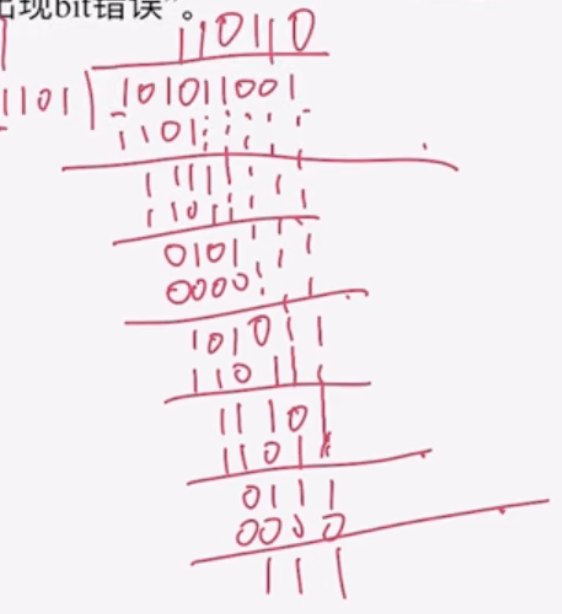 出现bit错误”。
110110
1101 101011001
1101
1111
1101
0101
0000
1010
1101
1110
1101
0111
0000
111